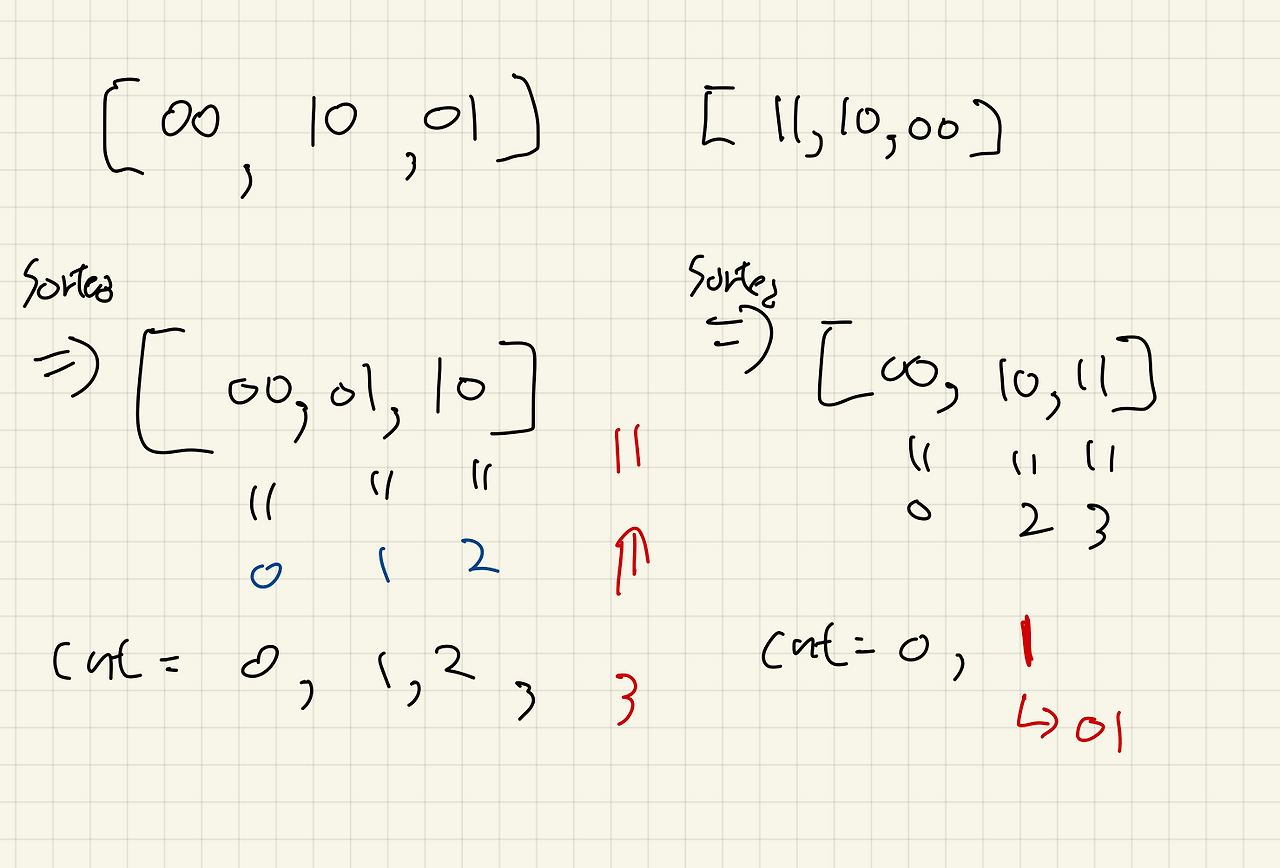 [ 00 , 10 , 01 ]
[ 11, 10, 00 ]
Sorted
⇒ [ 00, 01, 10 ]
11
" " "
0 1 2
⇑
cnt = 0 , 1 , 2 , 3
Sorted
⇒ [ 00, 10, 11 ]
" " "
0 2 3
cnt = 0 , 1
↳ 01